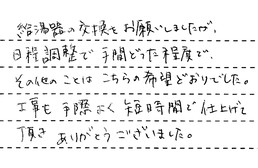 給湯器の交換をお願いしましたが、
日程調整で手間どった程度で、
その他のことはこちらの希望どおりでした。
工事も手際よく短時間で仕上げて
頂きありがとうございました。